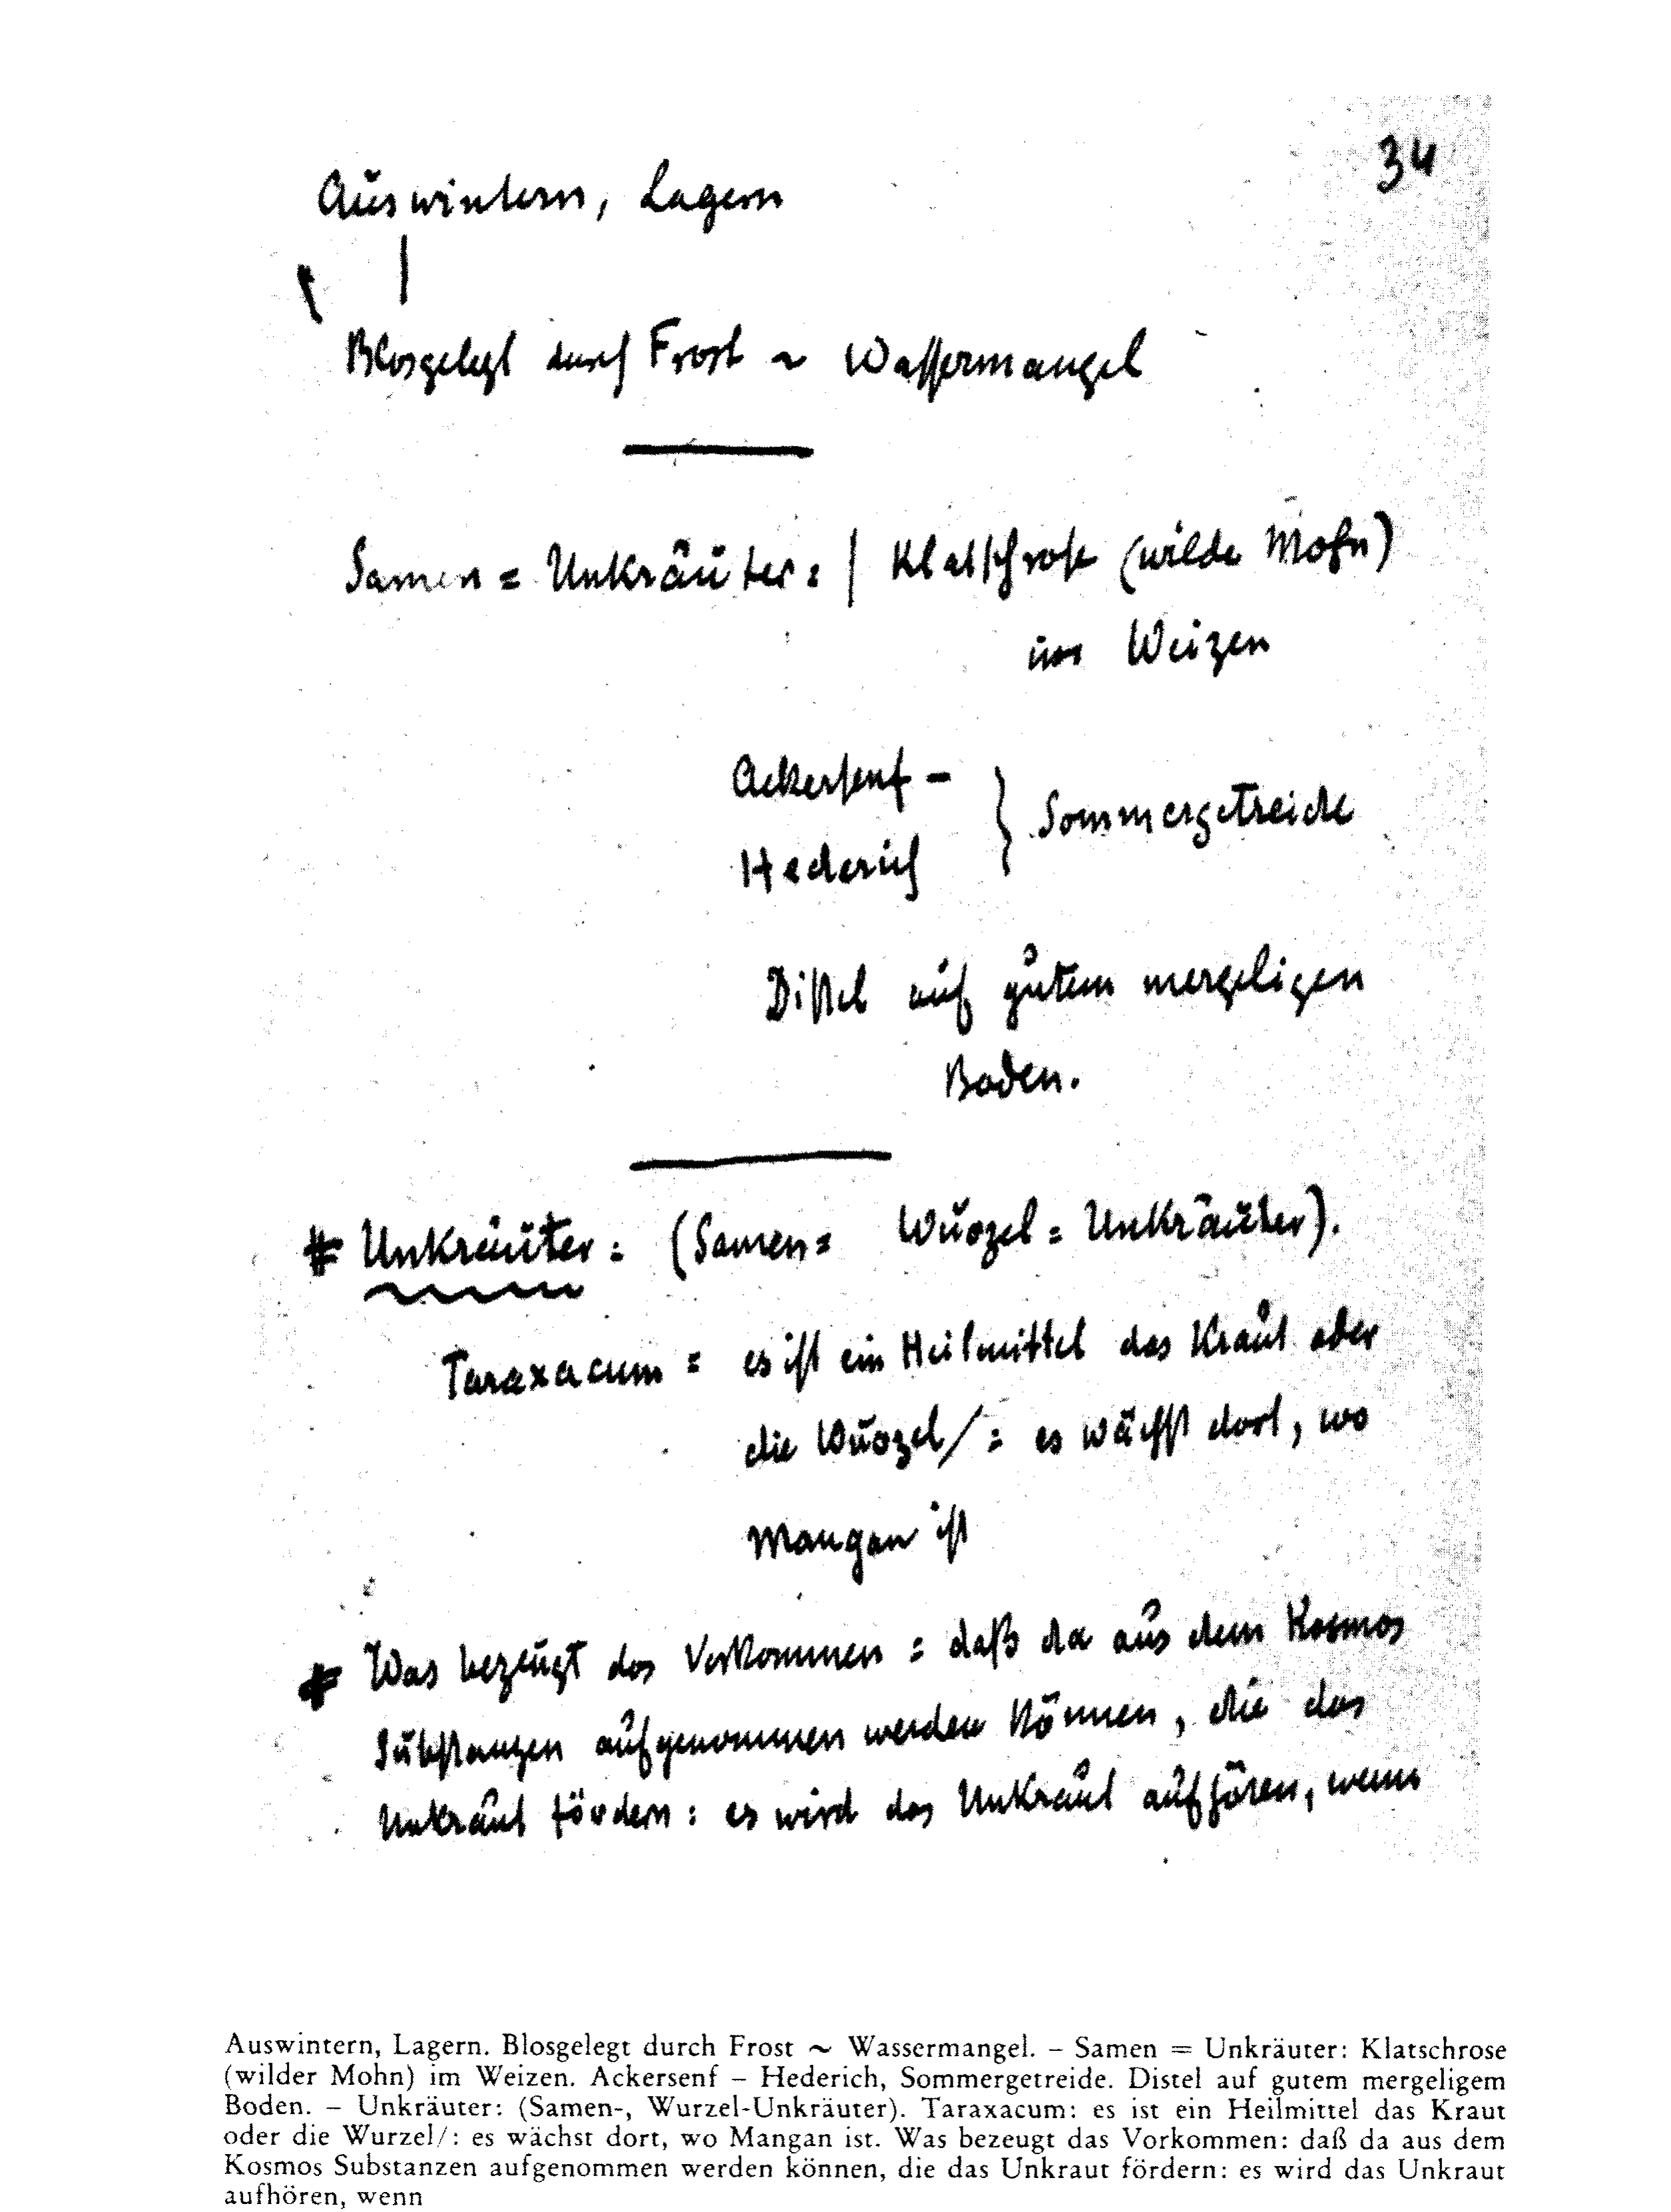 34
Auswintern, Lagern
Blosgelegt durch Frost ~ Wassermangel
Samen = Unkräuter: | Klatschrose (wilde Mohn)
im Weizen
Ackersenf -
Hederich } Sommergetreide
Distel auf gutem mergeligen
Boden.
# Unkräuter: (Samen= Wurzel= Unkräuter).
Taraxacum = es ist ein Heilmittel das Kraut oder
die Wurzel/: es wächst dort, wo
Mangan ist
# Was bezeugt das Vorkommen: daß da aus dem Kosmos
Substanzen aufgenommen werden können, die das
Unkraut fördern: es wird das Unkraut aufhören, wenn
Auswintern, Lagern. Blosgelegt durch Frost ~ Wassermangel. – Samen = Unkräuter: Klatschrose
(wilder Mohn) im Weizen. Ackersenf – Hederich, Sommergetreide. Distel auf gutem mergeligem
Boden. – Unkräuter: (Samen-, Wurzel-Unkräuter). Taraxacum: es ist ein Heilmittel das Kraut
oder die Wurzel/: es wächst dort, wo Mangan ist. Was bezeugt das Vorkommen: daß da aus dem
Kosmos Substanzen aufgenommen werden können, die das Unkraut fördern: es wird das Unkraut
aufhören, wenn